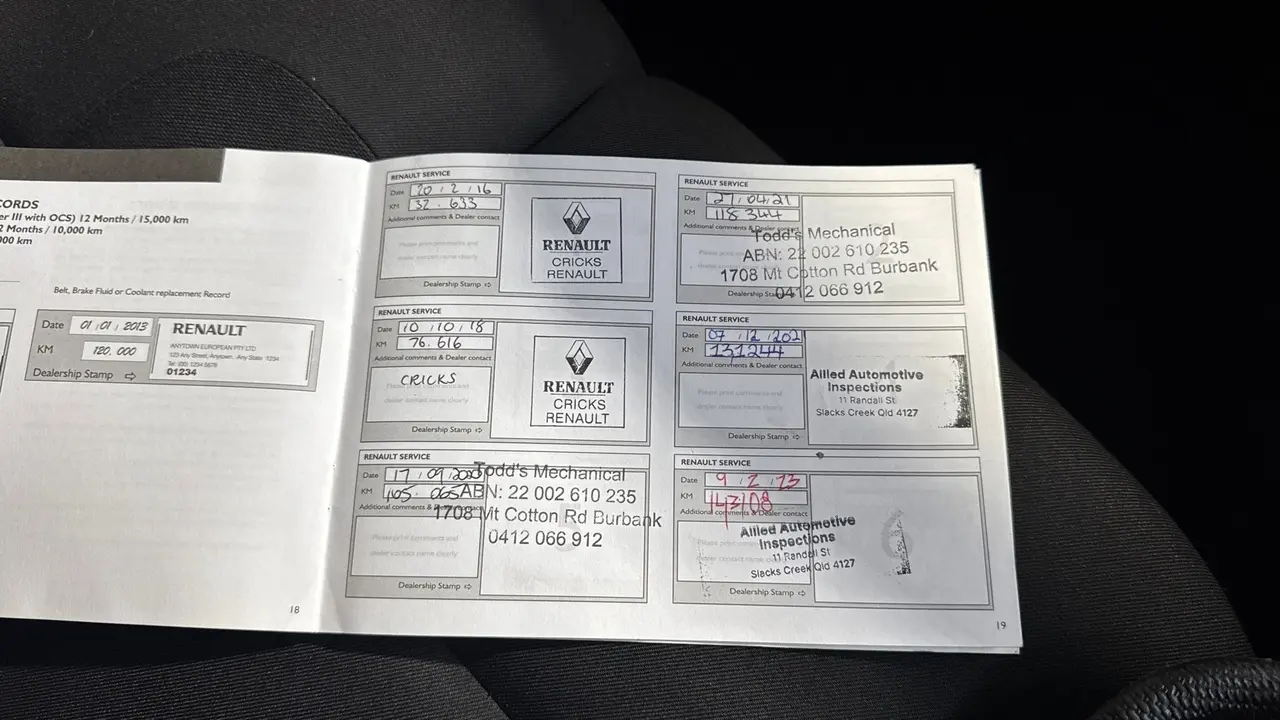 CORDS
er III with OCS) 12 Months / 15,000 km
2 Months / 10,000 km
000 km
Belt, Brake Fluid or Coolant replacement Record
Date 01/01/2013
KM 120.000
Dealership Stamp ⇨
RENAULT
ANYTOWN EUROPEAN PTY LTD
123 Any Street, Anytown. Any State 1234
Tel: (00) 1234 5678
01234
18
RENAULT SERVICE
Date 20/2/16
KM 32.633
Additional comments & Dealer contact
Please print comments and
dealer contact name clearly
Dealership Stamp ⇨
RENAULT
CRICKS
RENAULT
RENAULT SERVICE
Date 10/10/18
KM 76.616
Additional comments & Dealer contact
CRICKS
Please print comments and
dealer contact name clearly
Dealership Stamp ⇨
RENAULT
CRICKS
RENAULT
RENAULT SERVICE
Date 17/09/2020
KM 105.065
Additional comments &
Please print comments and
dealer contact name clearly
Dealership Stamp ⇨
Todd's Mechanical
ABN: 22 002 610 235
1708 Mt Cotton Rd Burbank
0412 066 912
RENAULT SERVICE
Date 27/04/21
KM 118.344
Additional comments & Dealer contact
Please print
Dealership Stamp
Todd's Mechanical
ABN: 22 002 610 235
1708 Mt Cotton Rd Burbank
0412 066 912
RENAULT SERVICE
Date 07/12/2021
KM 131244
Additional comments & Dealer contact
Please print comments and
dealer contact name clearly
Dealership Stamp ⇨
Allied Automotive
Inspections
11 Randall St
Slacks Creek Qld 4127
RENAULT SERVICE
Date 9/2/23
KM 143108
Additional comments & Dealer contact
Please print
dealer contact name
Dealership Stamp ⇨
Allied Automotive
Inspections
11 Randall St
Slacks Creek Qld 4127
19